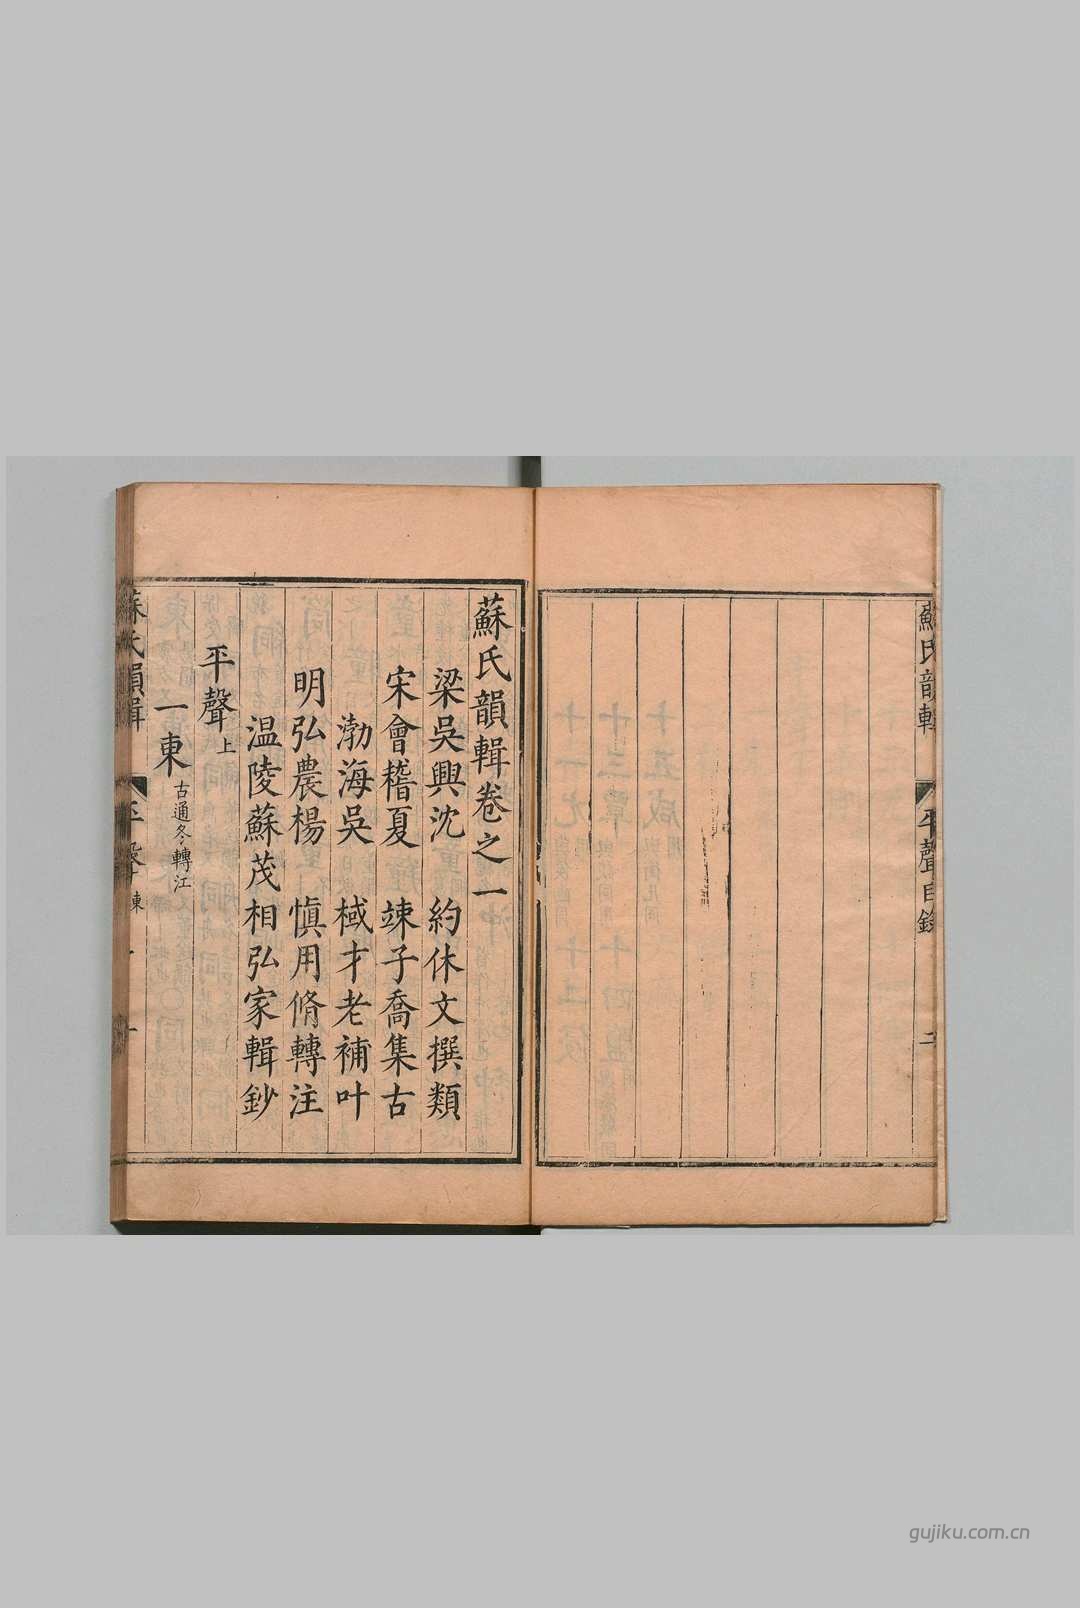 蘇氏韻輯
平聲目錄
二
蘇氏韻輯卷之一
梁吳興沈 約休文撰類
宋會稽夏 竦子喬集古
渤海吳 棫才老補叶
明弘農楊 慎用脩轉注
温陵蘇茂相弘家輯鈔
平聲上
一東古通冬轉江
蘇氏韻輯
平聲
東
gujiku.com.cn